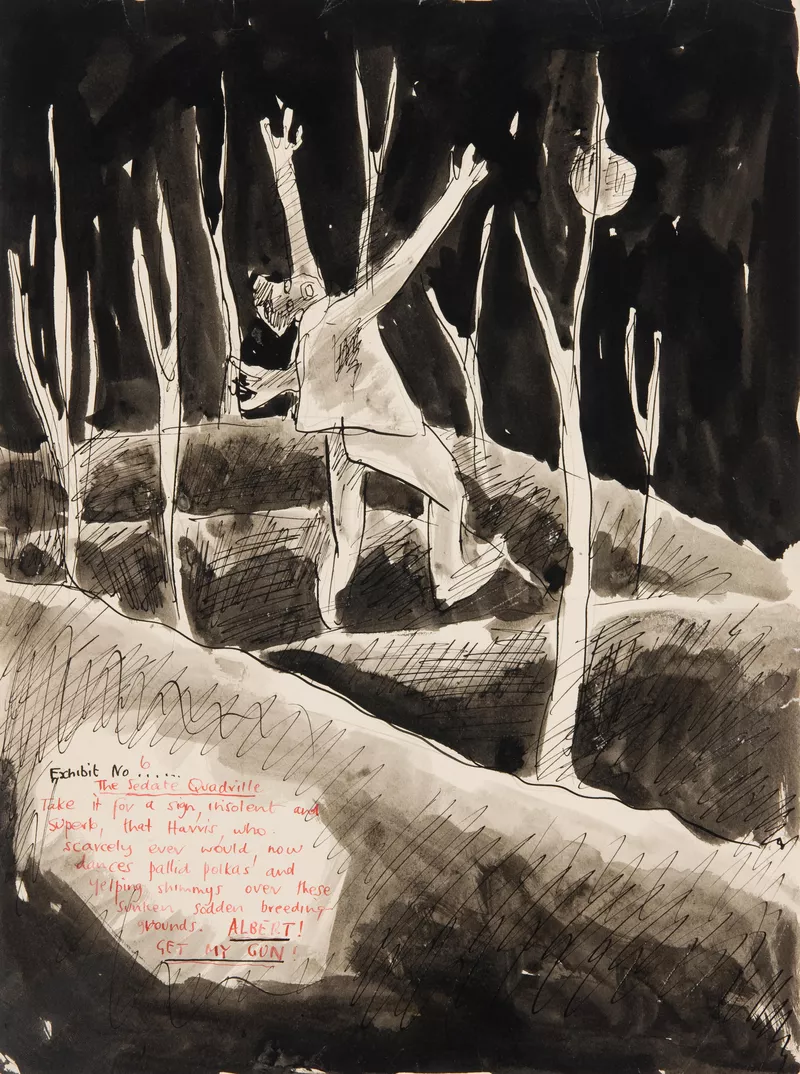 Exhibit No 6......
The Sedate Quadville
Take it for a sign, insolent and
superb, that Harris, who
scarcely ever would now
dances pallid polkas and
yelping shimmys over these
sunken sodden breeding
grounds. ALBERT!
GET MY GUN!